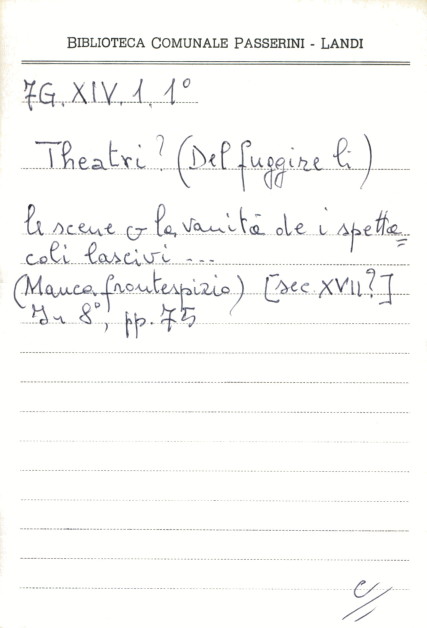 BIBLIOTECA COMUNALE PASSERINI - LANDI
7G. XIV. 1. 1°
Theatri? (Del fuggire li)
le scene & la vanità de i spetta=
coli lascivi ...
(Manca frontespizio) [sec. XVII?]
In 8°, pp. 75
C